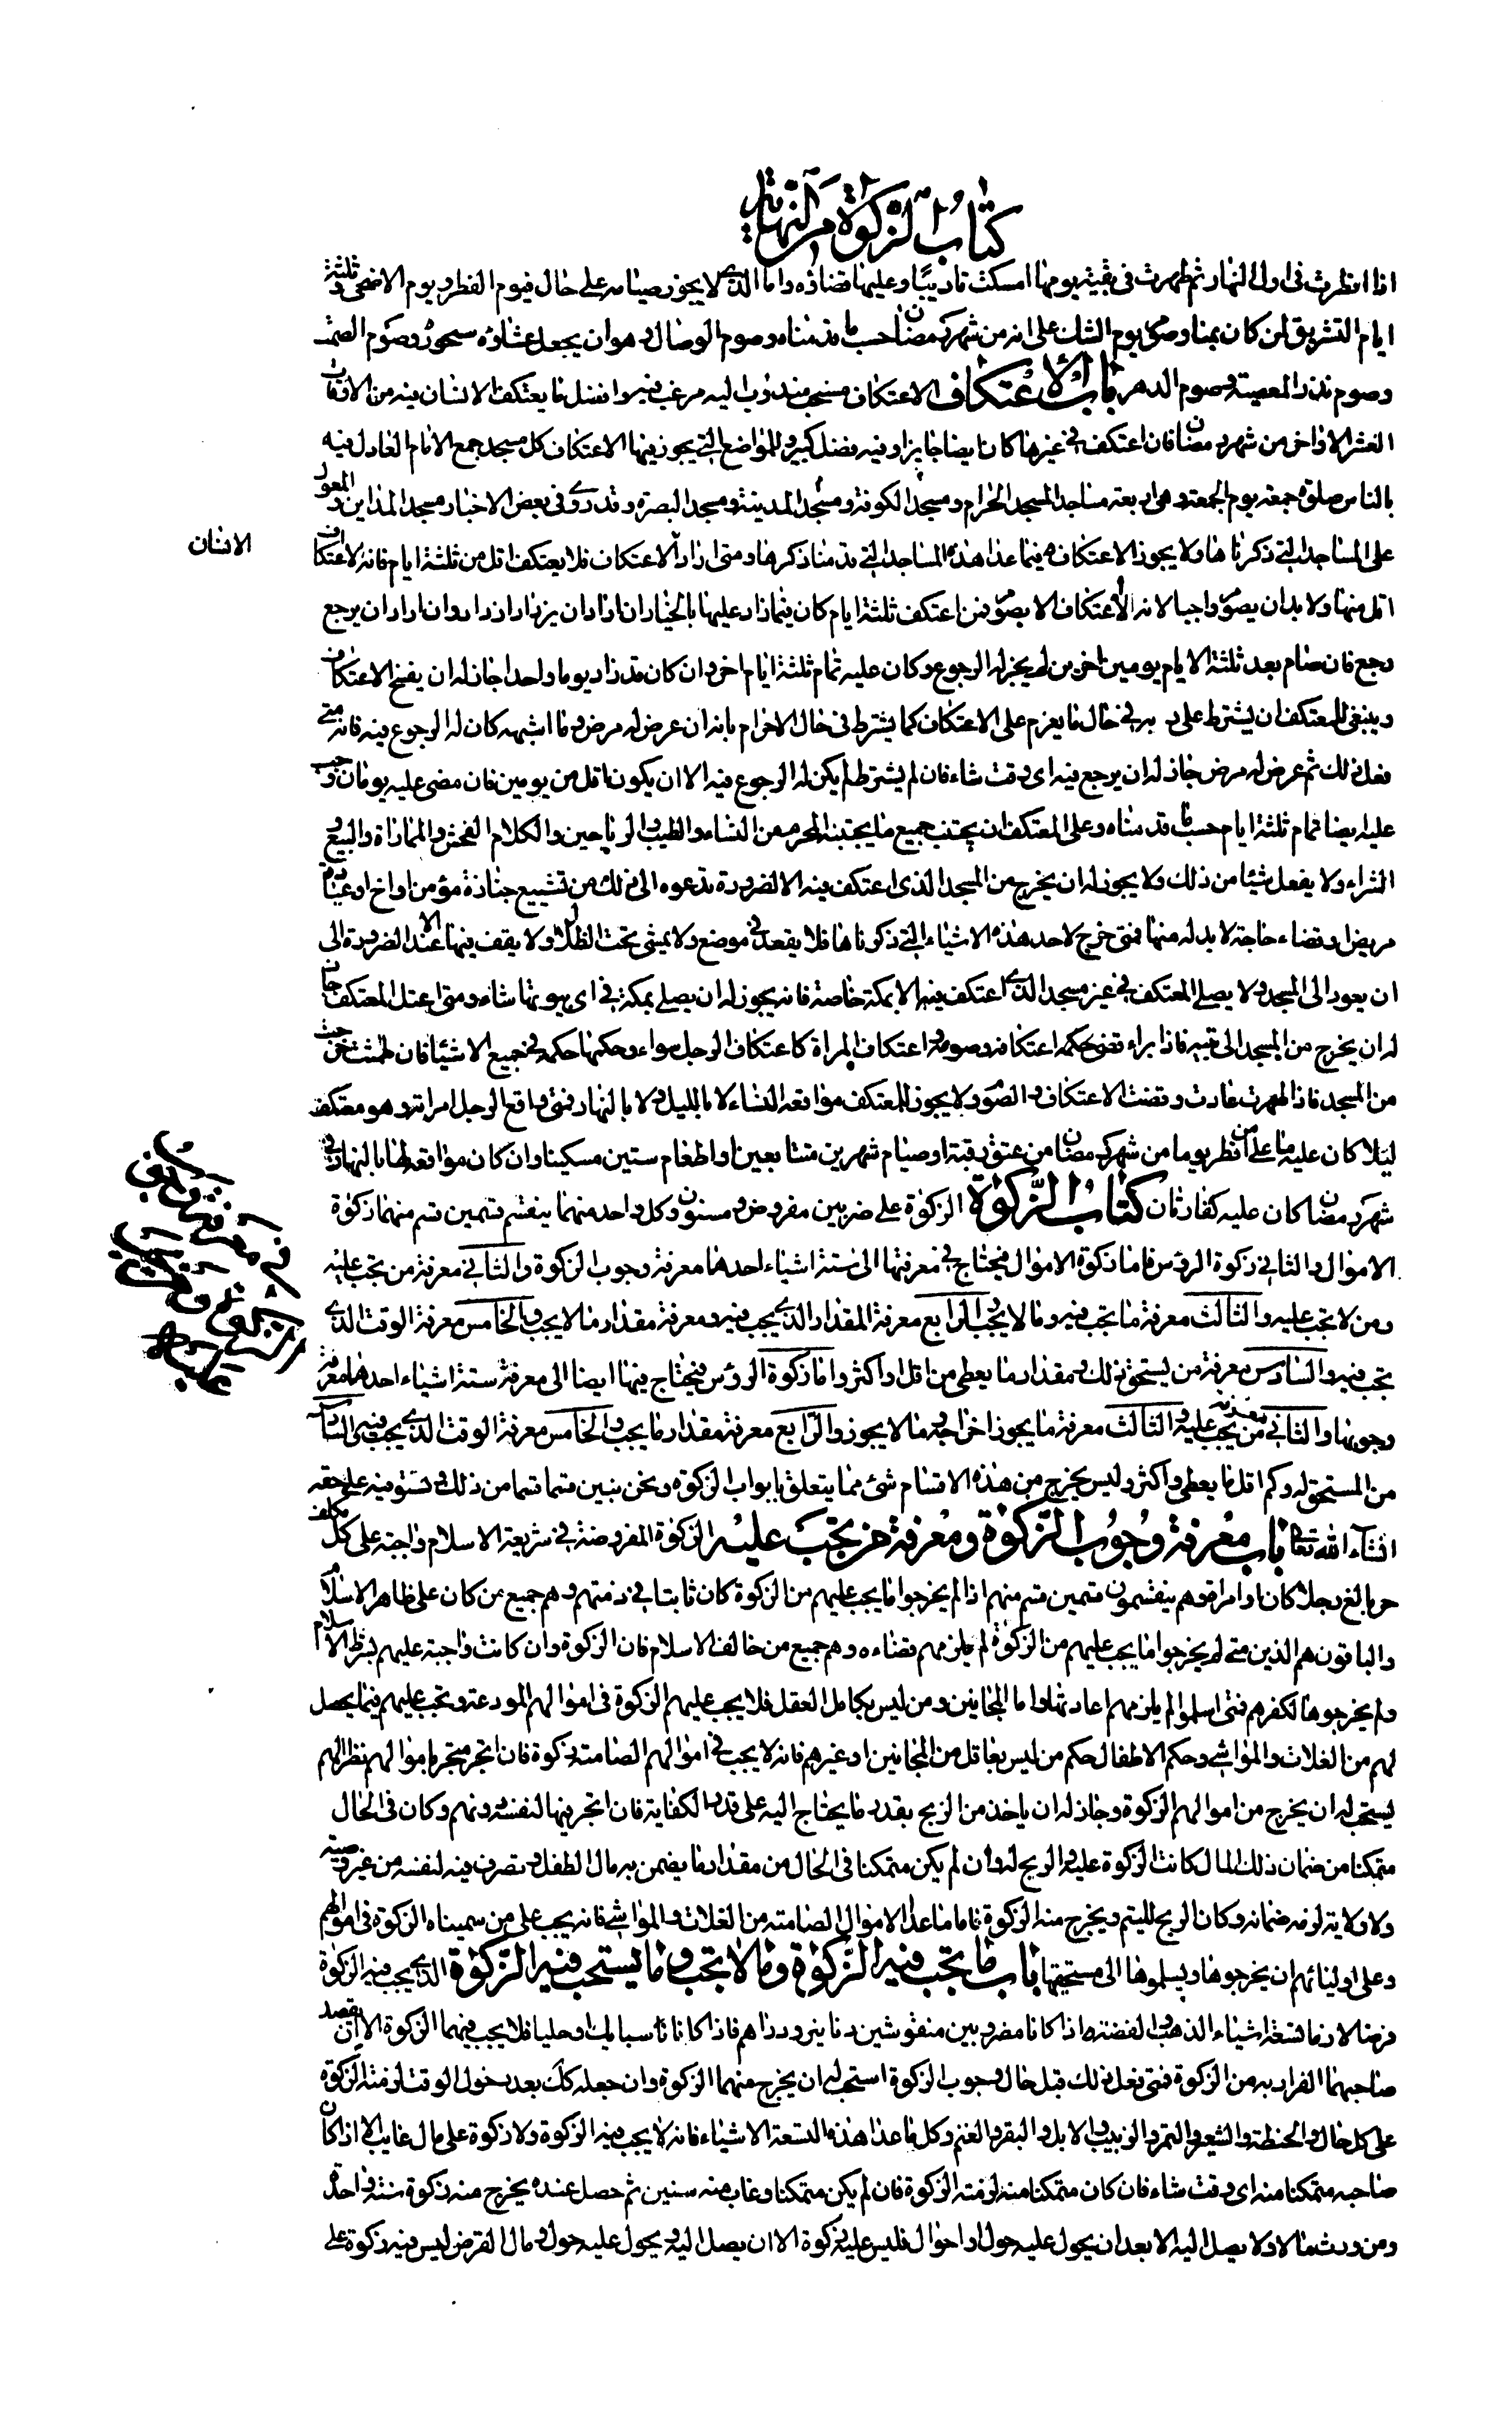 كتاب الزكوة من النهاية
اذا افطرت فى اول النهار ثم طهرت فى بقية يومها امسكت تاديبًا وعليها قضاؤه واما الذى لا يجوز صيامه على حال فيوم الفطر ويوم الاضحى وثلثة
ايام التشريق لمن كان بمنا وصوم يوم الشك على انه من شهر رمضان حسب ما قدمناه وصوم الوصال وهو ان يجعل عشاؤه سحوره وصوم الصمت
وصوم نذر المعصية وصوم الدهر باب الاعتكاف الاعتكاف مستحب مندوب اليه مرغب فيه وافضل ما يعتكف الانسان فيه من الاوقات
العشر الاواخر من شهر رمضان فان اعتكف فى غيرها كان ايضا جايزا وفيه فضل كبير والمواضع التى يجوز فيها الاعتكاف كل مسجد جمع الامام العادل فيه
بالناس صلوة جمعة يوم الجمعة وهى اربعة مساجد المسجد الحرام ومسجد الكوفة ومسجد المدينة ومسجد البصرة وقد روى فى بعض الاخبار مسجد المداين والمعول
على المساجد التى ذكرناها ولا يجوز الاعتكاف فيما عدا هذه المساجد التى قدمنا ذكرها ومتى اراد الاعتكاف فلا يعتكف اقل من ثلثة ايام فانه لا اعتكاف
الانسان
اقل منها ولا بد ان يصوم واجبا لانه لا اعتكاف الا بصوم فمن اعتكف ثلثة ايام كان فيما زاد عليها بالخيار ان اراد ان يزداد ازداد وان اراد ان يرجع
رجع فان صام بعد ثلثة الايام يومين اخرين لم يجز له الرجوع وكان عليه تمام ثلثة ايام اخر وان كان قد زاد يوما واحدا جاز له ان يفسخ الاعتكاف
وينبغى للمعتكف ان يشترط على ربه فى حال ما يعزم على الاعتكاف كما يشترط فى حال الاحرام بانه ان عرض له مرض وما اشبهه كان له الرجوع فيه فانه متى
فعل ذلك ثم عرض له مرض جاز له ان يرجع فيه اى وقت شاء فان لم يشترط لم يكن له الرجوع فيه الا ان يكون اقل من يومين فان مضى عليه يومان وجب
عليه ايضا تمام ثلثة ايام حسب ما قدمناه وعلى المعتكف ان يجتنب جميع ما يجتنبه المحرم من النساء والطيب والرياحين والكلام الفحش والمماراة والبيع و
الشراء ولا يفعل شيئا من ذلك ولا يجوز له ان يخرج من المسجد الذى اعتكف فيه الا لضرورة تدعوه الى ذلك من تشييع جنازة مؤمن او اخ او عيادة
مريض او قضاء حاجة لا بد له منها فمتى خرج لاحد هذه الاشياء التى ذكرناها فلا يقعد فى موضع ولا يمشى تحت الظلال ولا يقف فيها الا عند الضرورة الى
ان يعود الى المسجد ولا يصلى المعتكف فى غير مسجد الذى اعتكف فيه الا بمكة خاصة فانه يجوز له ان يصلى بمكة فى اى بيوتها شاء ومتى اعتل المعتكف جاز
له ان يخرج من المسجد الى بيته فاذا براء قضى اعتكافه وصومه واعتكاف المراة كاعتكاف الرجل سواء وحكمها حكمه فى جميع الاشياء فان طمثت خرجت
من المسجد فاذا طهرت عادت وقضت الاعتكاف والصوم ولا يجوز للمعتكف مواقعة النساء لا بالليل ولا بالنهار فمتى واقع الرجل امراته وهو معتكف
ليلا كان عليه ما على من افطر يوما من شهر رمضان من عتق رقبة او صيام شهرين متتابعين او اطعام ستين مسكينا وان كان مواقعة لها بالنهار فى
شهر رمضان كان عليه كفارتان كتاب الزكوة الزكوة على ضربين مفروض ومسنون وكل واحد منهما ينقسم قسمين قسم منهما زكوة
الاموال والثانى زكوة الرؤس فاما زكوة الاموال فيحتاج فى معرفتها الى ستة اشياء احدها معرفة وجوب الزكوة والثانى معرفة من تجب عليه
ومن لا تجب عليه والثالث معرفة ما تجب فيه وما لا يجب والرابع معرفة المقدار الذى يجب فيه ومعرفة مقدار ما لا يجب والخامس معرفة الوقت الذى
تجب فيه والسادس معرفة من يستحق ذلك ومقدار ما يعطى من اقل او اكثر واما زكوة الرؤس فيحتاج فيها ايضا الى معرفة ستة اشياء احدها معرفة
وجوبها والثانى معرفة من يجب عليه والثالث معرفة ما يجوز اخراجه وما لا يجوز والرابع معرفة مقدار ما يجب والخامس معرفة الوقت الذى يجب فيه والسادس
من المستحق له وكم اقل ما يعطى واكثر وليس يخرج من هذه الاقسام شئ مما يتعلق بابواب الزكوة ونحن نبين قسما قسما من ذلك ونستوفيه على حقه
انشاء الله تعالى باب معرفة وجوب الزكوة ومعرفة من تجب عليه الزكوة المفروضة فى شريعة الاسلام واجبة على كل مكلف
حر بالغ رجلا كان او امراة وهم ينقسمون قسمين قسم منهم اذا لم يخرجوا ما يجب عليهم من الزكوة كان ثابتا فى ذمتهم وهم جميع من كان على ظاهر الاسلام
والباقون هم الذين متى لم يخرجوا ما يجب عليهم من الزكوة لم يلزمهم قضاءه وهم جميع من خالف الاسلام فان الزكوة وان كانت واجبة عليهم بشرط الاسلام
ولم يخرجوها لكفرهم فمتى اسلموا لم يلزمهم اعادتها واما المجانين ومن ليس بكامل العقل فلا يجب عليهم الزكوة فى اموالهم المودعة وتجب عليهم فيما يحصل
لهم من الغلات والمواشى وحكم الاطفال حكم من ليس بعاقل من المجانين او غيرهم فانه لا يجب فى اموالهم الصامتة زكوة فان اتجر متجر باموالهم نظرا لهم
يستحب له ان يخرج من اموالهم الزكوة وجاز له ان ياخذ من الربح بقدر ما يحتاج اليه على قدر الكفاية فان اتجر فيها لنفسه دونهم وكان فى الحال
متمكنا من ضمان ذلك المال كانت الزكوة عليه والربح له وان لم يكن متمكنا فى الحال من مقدار ما يضمن به مال الطفل وتصرف فيه لنفسه من غير وصية
ولا ولاية لزمه ضمانه وكان الربح لليتيم ويخرج منه الزكوة فاما ما عدا الاموال الصامتة من الغلات والمواشى فانه يجب على من سميناه الزكوة فى اموالهم
وعلى اوليائهم ان يخرجوها ويسلموها الى مستحقيها باب ما تجب فيه الزكوة وما لا تجب وما يستحب فيه الزكوة الذى يجب فيه الزكوة
فرضا لازما تسعة اشياء الذهب والفضة اذا كانا مضروبين منقوشين دنانير ودراهم فاذا كانا سبايك او حليا فلا يجب فيهما الزكوة الا ان يقصد
صاحبهما الفرار به من الزكوة فمتى فعل ذلك قبل حال وجوب الزكوة استحب له ان يخرج منهما الزكوة وان جعله كك بعد دخول الوقت لزمته الزكوة
على كل حال والحنطة والشعير والتمر والزبيب والابل والبقر والغنم وكل ما عدا هذه التسعة الاشياء فانه لا يجب فيه الزكوة ولا زكوة على مال غايب الا اذا كان
صاحبه متمكنا منه اى وقت شاء فان كان متمكنا منه لزمته الزكوة فان لم يكن متمكنا وغاب منه سنين ثم حصل عنده يخرج منه زكوة سنة واحدة
ومن ورث مالا ولا يصل اليه الا بعد ان يحول عليه حول او احوال فليس عليه زكوة الا ان يصل اليه ويحول عليه حول ومال القرض ليس فيه زكوة على